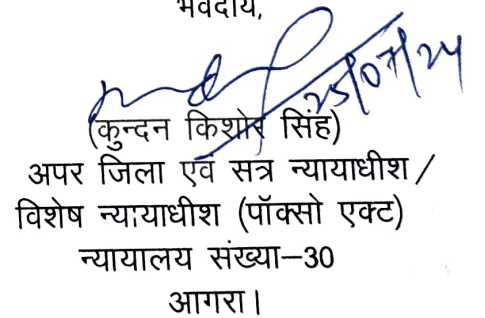 भवदीय,
25/07/24
(कुन्दन किशोर सिंह)
अपर जिला एवं सत्र न्यायाधीश/
विशेष न्यायाधीश (पॉक्सो एक्ट)
न्यायालय संख्या–30
आगरा।